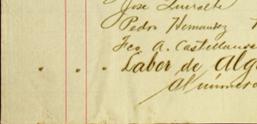 Jose
Pedro Hernandez
Fco A. Castellanos
Labor de Alg
Al número